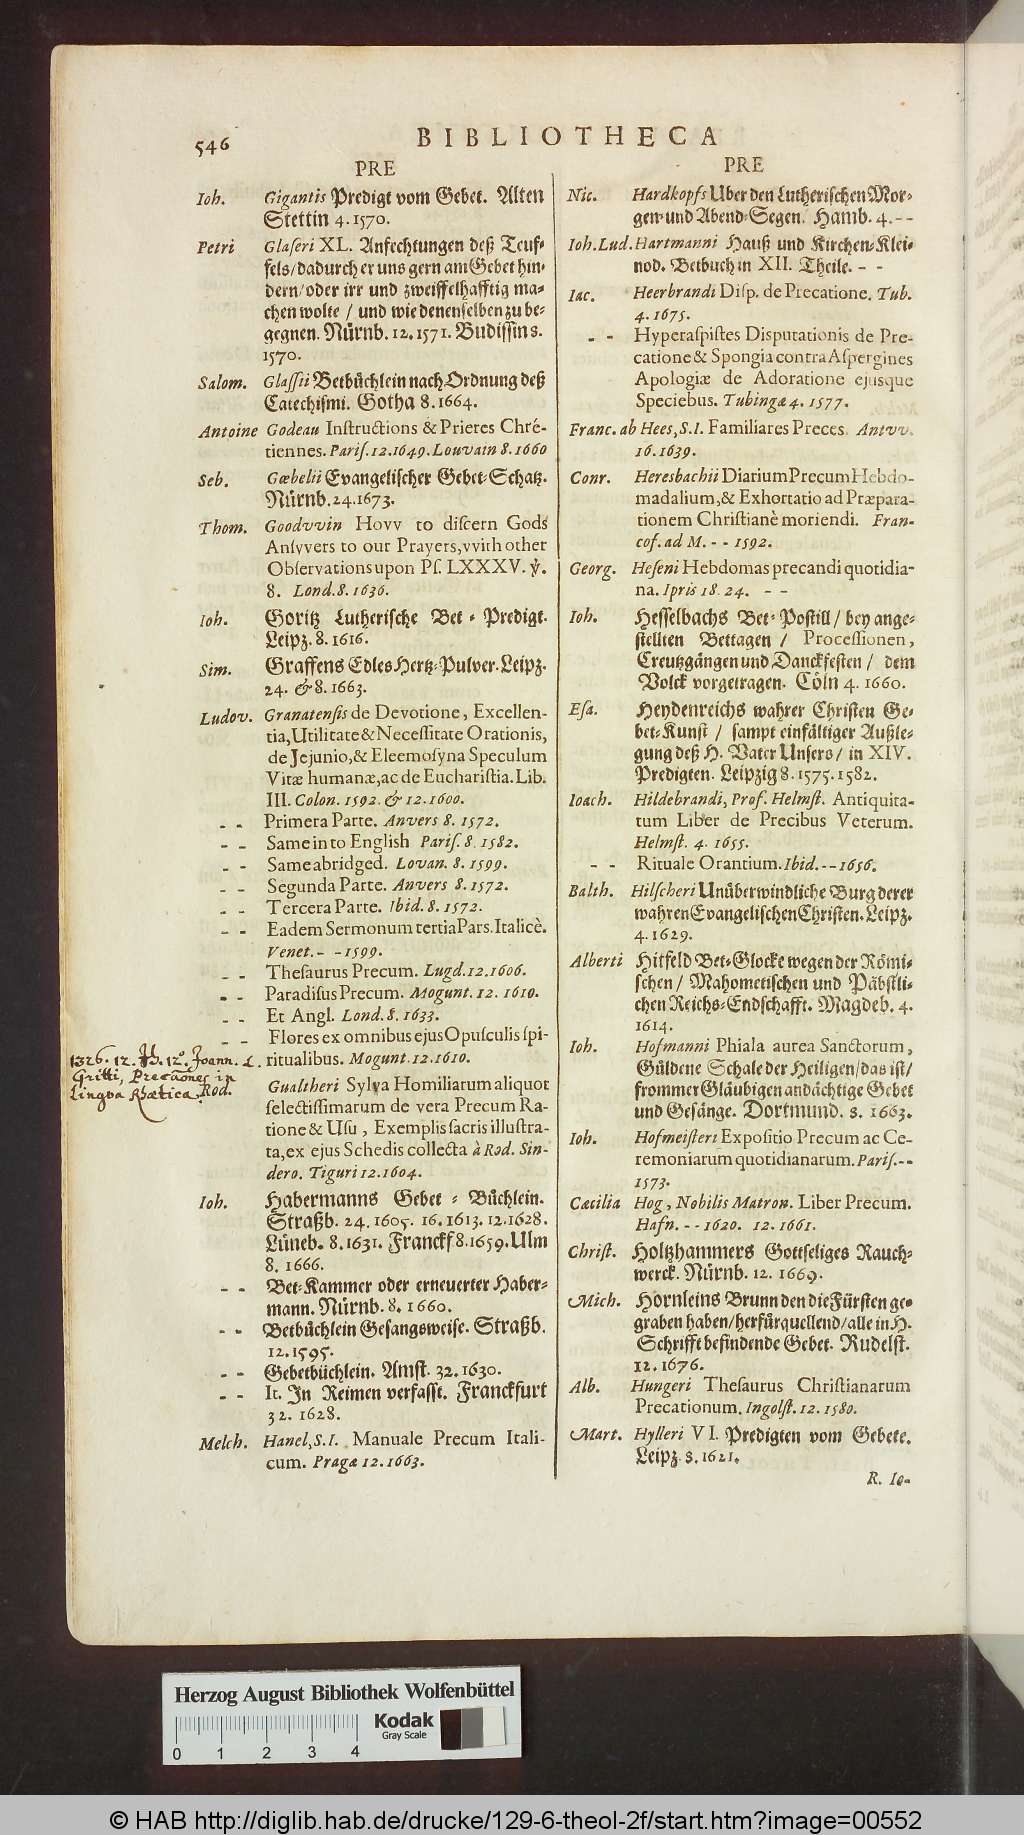 546
BIBLIOTHECA
PRE
Ioh. Gigantis Predigt vom Gebet. Alten
Stettin 4. 1570.
Petri Glaseri XL. Anfechtungen deß Teuf-
fels/dadurch er uns gern am Gebet hin-
dern/oder irr und zweiffelhafftig ma-
chen wolte / und wie denenselben zu be-
gegnen. Nürnb. 12. 1571. Budissin 8.
1570.
Salom. Glassii Betbüchlein nach Ordnung deß
Catechismi. Gotha 8. 1664.
Antoine Godeau Instructions & Prieres Chré-
tiennes. Paris. 12. 1649. Louvain 8. 1660
Seb. Gœbelii Evangelischer Gebet-Schatz.
Nürnb. 24. 1673.
Thom. Goodvvin Hovv to discern Gods
Ansvvers to our Prayers, vvith other
Observations upon Ps. LXXXV. ꝟ.
8. Lond. 8. 1636.
Ioh. Goritz Lutherische Bet-Predigt.
Leipz. 8. 1616.
Sim. Graffens Edles Hertz-Pulver. Leipz.
24. & 8. 1663.
Ludov. Granatensis de Devotione, Excellen-
tia, Utilitate & Necessitate Orationis,
de Jejunio, & Eleemosyna Speculum
Vitæ humanæ, ac de Eucharistia. Lib.
III. Colon. 1592. & 12. 1600.
- - Primera Parte. Anvers 8. 1572.
- - Same in to English Paris. 8. 1582.
- - Same abridged. Lovan. 8. 1599.
- - Segunda Parte. Anvers 8. 1572.
- - Tercera Parte. Ibid. 8. 1572.
- - Eadem Sermonum tertia Pars. Italicè.
Venet. - - 1599.
- - Thesaurus Precum. Lugd. 12. 1606.
- - Paradisus Precum. Mogunt. 12. 1610.
- - Et Angl. Lond. 8. 1633.
- - Flores ex omnibus ejus Opusculis spi-
ritualibus. Mogunt. 12. 1610.
1326. 12. Th. 12º. Joann. L.
Gritti, Precationes in
Lingva Rhætica.
Rod. Gualtheri Sylva Homiliarum aliquot
selectissimarum de vera Precum Ra-
tione & Usu, Exemplis sacris illustra-
ta, ex ejus Schedis collecta à Rod. Sin-
dero. Tiguri 12. 1604.
Ioh. Habermanns Gebet-Büchlein.
Straßb. 24. 1605. 16. 1613. 12. 1628.
Lüneb. 8. 1631. Franckf 8. 1659. Ulm
8. 1666.
- - Bet-Kammer oder erneuerter Haber-
mann. Nürnb. 8. 1660.
- - Betbüchlein Gesangsweise. Straßb.
12. 1595.
- - Gebetbüchlein. Amst. 32. 1630.
- - It. In Reimen verfasst. Franckfurt
32. 1628.
Melch. Hanel, S.I. Manuale Precum Itali-
cum. Pragæ 12. 1663.
PRE
Nic. Hardkopfs Uber den Lutherischen Mor-
gen- und Abend-Segen. Hamb. 4. - -
Ioh. Lud. Hartmanni Hauß und Kirchen-Klei-
nod. Betbuch in XII. Theile. - -
Iac. Heerbrandi Disp. de Precatione. Tub.
4. 1675.
- - Hyperaspistes Disputationis de Pre-
catione & Spongia contra Aspergines
Apologiæ de Adoratione ejusque
Speciebus. Tubingæ 4. 1577.
Franc. ab Hees, S.I. Familiares Preces. Antvv.
16. 1639.
Conr. Heresbachii Diarium Precum Hebdo-
madalium, & Exhortatio ad Præpara-
tionem Christianè moriendi. Fran-
cof. ad M. - - 1592.
Georg. Heseni Hebdomas precandi quotidia-
na. Ipris 18. 24. - -
Ioh. Hesselbachs Bet-Postill / bey ange-
stellten Bettagen / Processionen,
Creutzgängen und Danckfesten / dem
Volck vorgetragen. Cöln 4. 1660.
Esa. Heydenreichs wahrer Christen Ge-
bet-Kunst / sampt einfältiger Außle-
gung deß H. Vater Unsers / in XIV.
Predigten. Leipzig 8. 1575. 1582.
Ioach. Hildebrandi, Prof. Helmst. Antiquita-
tum Liber de Precibus Veterum.
Helmst. 4. 1655.
- - Rituale Orantium. Ibid. - - 1656.
Balth. Hilscheri Unüberwindliche Burg derer
wahren Evangelischen Christen. Leipz.
4. 1629.
Alberti Hitfeld Bet-Glocke wegen der Römi-
schen / Mahometischen und Päbstli-
chen Reichs-Endschafft. Magdeb. 4.
1614.
Ioh. Hofmanni Phiala aurea Sanctorum,
Güldene Schale der Heiligen/das ist/
frommer Gläubigen andächtige Gebet
und Gesänge. Dortmund. 8. 1663.
Ioh. Hofmeisteri Expositio Precum ac Ce-
remoniarum quotidianarum. Paris. - -
1573.
Cæcilia Hog, Nobilis Matron. Liber Precum.
Hafn. - - 1620. 12. 1661.
Christ. Holtzhammers Gottseliges Rauch-
werck. Nürnb. 12. 1669.
Mich. Hornleins Brunn den die Fürsten ge-
graben haben/herfürquellend/alle in H.
Schrifft befindende Gebet. Rudelst.
12. 1676.
Alb. Hungeri Thesaurus Christianarum
Precationum. Ingolst. 12. 1580.
Mart. Hylleri VI. Predigten vom Gebete.
Leipz. 8. 1621.
R. Ie-
Herzog August Bibliothek Wolfenbüttel
Kodak
Gray Scale
0 1 2 3 4
© HAB http://diglib.hab.de/drucke/129-6-theol-2f/start.htm?image=00552